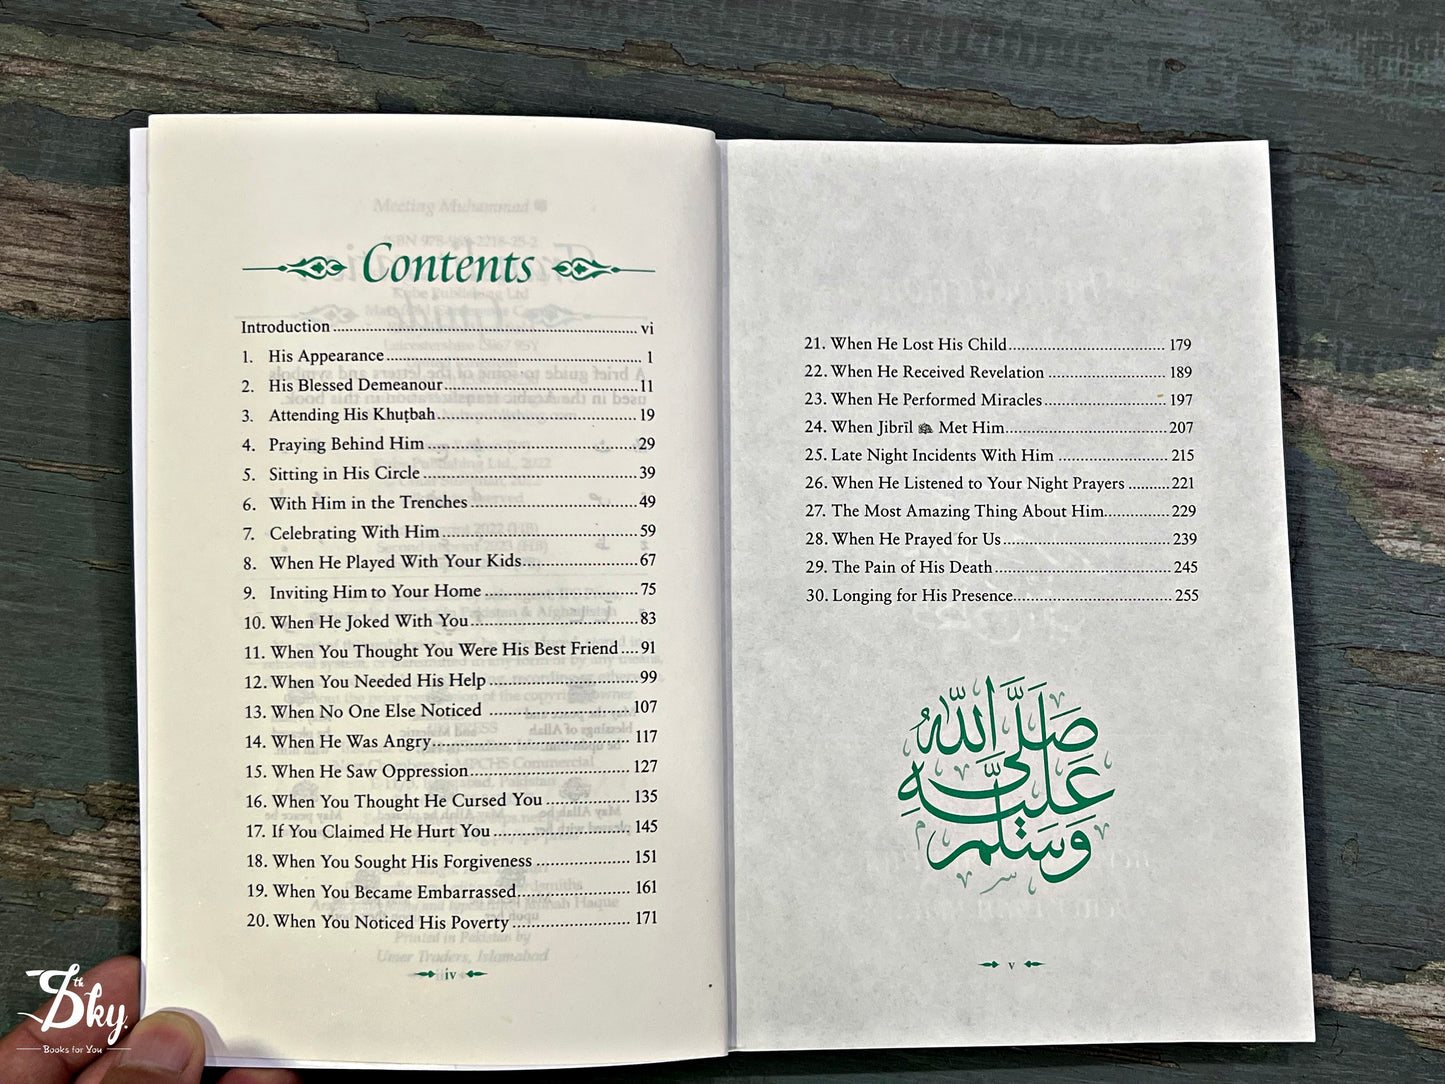 Meeting Muhammad
Contents
Introduction ........ vi
1. His Appearance ........ 1
2. His Blessed Demeanour ........ 11
3. Attending His Khuṭbah ........ 19
4. Praying Behind Him ........ 29
5. Sitting in His Circle ........ 39
6. With Him in the Trenches ........ 49
7. Celebrating With Him ........ 59
8. When He Played With Your Kids ........ 67
9. Inviting Him to Your Home ........ 75
10. When He Joked With You ........ 83
11. When You Thought You Were His Best Friend .... 91
12. When You Needed His Help ........ 99
13. When No One Else Noticed ........ 107
14. When He Was Angry ........ 117
15. When He Saw Oppression ........ 127
16. When You Thought He Cursed You ........ 135
17. If You Claimed He Hurt You ........ 145
18. When You Sought His Forgiveness ........ 151
19. When You Became Embarrassed ........ 161
20. When You Noticed His Poverty ........ 171
Printed in Pakistan by
Umer Traders, Islamabad
iv
21. When He Lost His Child ........ 179
22. When He Received Revelation ........ 189
23. When He Performed Miracles ........ 197
24. When Jibrīl Met Him ........ 207
25. Late Night Incidents With Him ........ 215
26. When He Listened to Your Night Prayers ........ 221
27. The Most Amazing Thing About Him ........ 229
28. When He Prayed for Us ........ 239
29. The Pain of His Death ........ 245
30. Longing for His Presence ........ 255
صَلَّى اللهُ
عَلَيْهِ
وَسَلَّم
v
Sky
th
Books for You